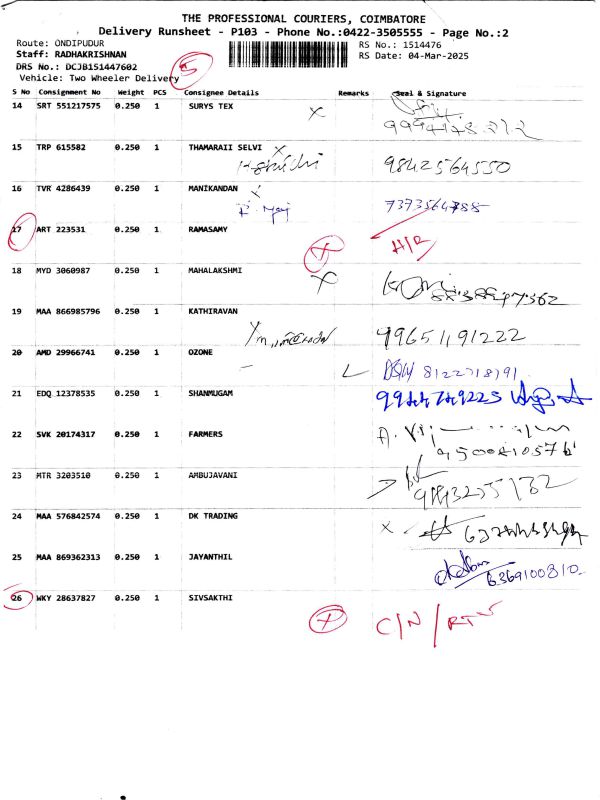 THE PROFESSIONAL COURIERS, COIMBATORE
Delivery Runsheet - P103 - Phone No.:0422-3505555 - Page No.:2
Route: ONDIPUDUR
RS No.: 1514476
Staff: RADHAKRISHNAN
RS Date: 04-Mar-2025
DRS No.: DCJB151447602
5
Vehicle: Two Wheeler Delivery
S No Consignment No Weight PCS Consignee Details Remarks Seal & Signature
14 SRT 551217575 0.250 1 SURYS TEX X
15 TRP 615582 0.250 1 THAMARAII SELVI X
9842564550
16 TVR 4286439 0.250 1 MANIKANDAN X
7373564788
17 ART 223531 0.250 1 RAMASAMY X H/R
18 MYD 3060987 0.250 1 MAHALAKSHMI X
19 MAA 866985796 0.250 1 KATHIRAVAN
9965191222
20 AMD 29966741 0.250 1 OZONE
8122718191
21 EDQ 12378535 0.250 1 SHANMUGAM
9944749225
22 SVK 20174317 0.250 1 FARMERS
23 MTR 3203510 0.250 1 AMBUJAVANI
24 MAA 576842574 0.250 1 DK TRADING X
25 MAA 869362313 0.250 1 JAYANTHIL
6369100810
26 WKY 28637827 0.250 1 SIVSAKTHI X C/N/RTN